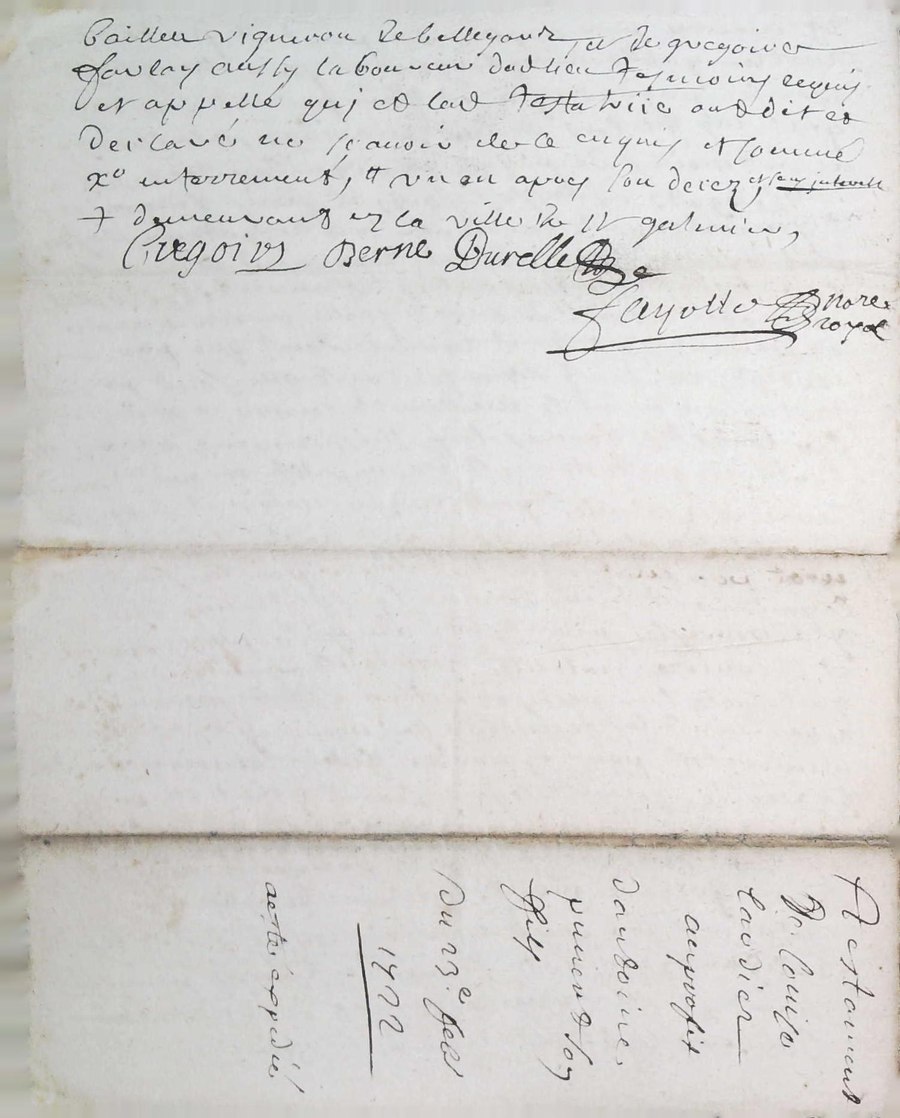 vigneron de bellegarde et de gregoire
aussy laboureur dud lieu tesmoins requis
et appellé qui et lad testatrice ont dit et
declaré ne sçavoir de ce enquis et sommé
xo enterrement, tt un an apres son decez,
+ demeurants en la ville de st galmier,
Gregoire Berne Durelle
Fayolle nore
royal
Testament
De Louise
au profit
d'antoine
son
fils
Du 23e feb
1722
acte expedié